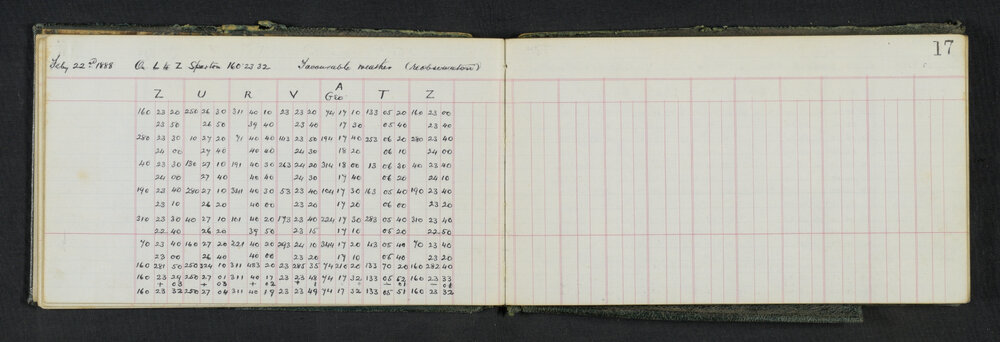 17
Feby 22nd 1888 On L to Z Sparton 160 23 32 Favourable weather (reobservation)
Z U R V A T Z
Geo
160 23 20 250 26 30 311 40 10 23 23 20 74 17 10 133 05 20 160 23 00
23 50 26 50 39 40 23 40 17 30 05 40 23 40
280 23 30 10 27 20 71 40 40 143 23 50 194 17 40 253 06 20 280 23 40
24 00 27 40 40 40 24 30 18 20 06 10 24 00
40 23 30 130 27 10 191 40 30 263 24 20 314 18 00 13 06 30 40 23 40
24 00 27 40 40 40 24 30 17 40 06 20 24 10
190 23 40 280 27 10 341 40 30 53 23 40 104 17 30 163 05 40 190 23 40
23 10 26 20 40 00 23 20 17 20 06 00 23 20
310 23 30 40 27 10 101 40 20 173 23 40 224 17 30 283 05 40 310 23 40
22 40 26 20 39 50 23 15 17 10 05 20 22 50
70 23 40 160 27 20 221 40 20 293 24 10 344 17 20 43 05 40 70 23 40
23 00 26 40 40 00 23 20 17 10 05 40 23 20
160 281 50 250 324 10 311 483 20 23 285 35 74 210 20 133 70 20 160 282 40
160 23 29 250 27 01 311 40 17 23 23 48 74 17 32 133 05 52 160 23 33
+ 03 + 03 + 02 + 1 - 01 - 01
160 23 32 250 27 04 311 40 19 23 23 49 74 17 32 133 05 51 160 23 32